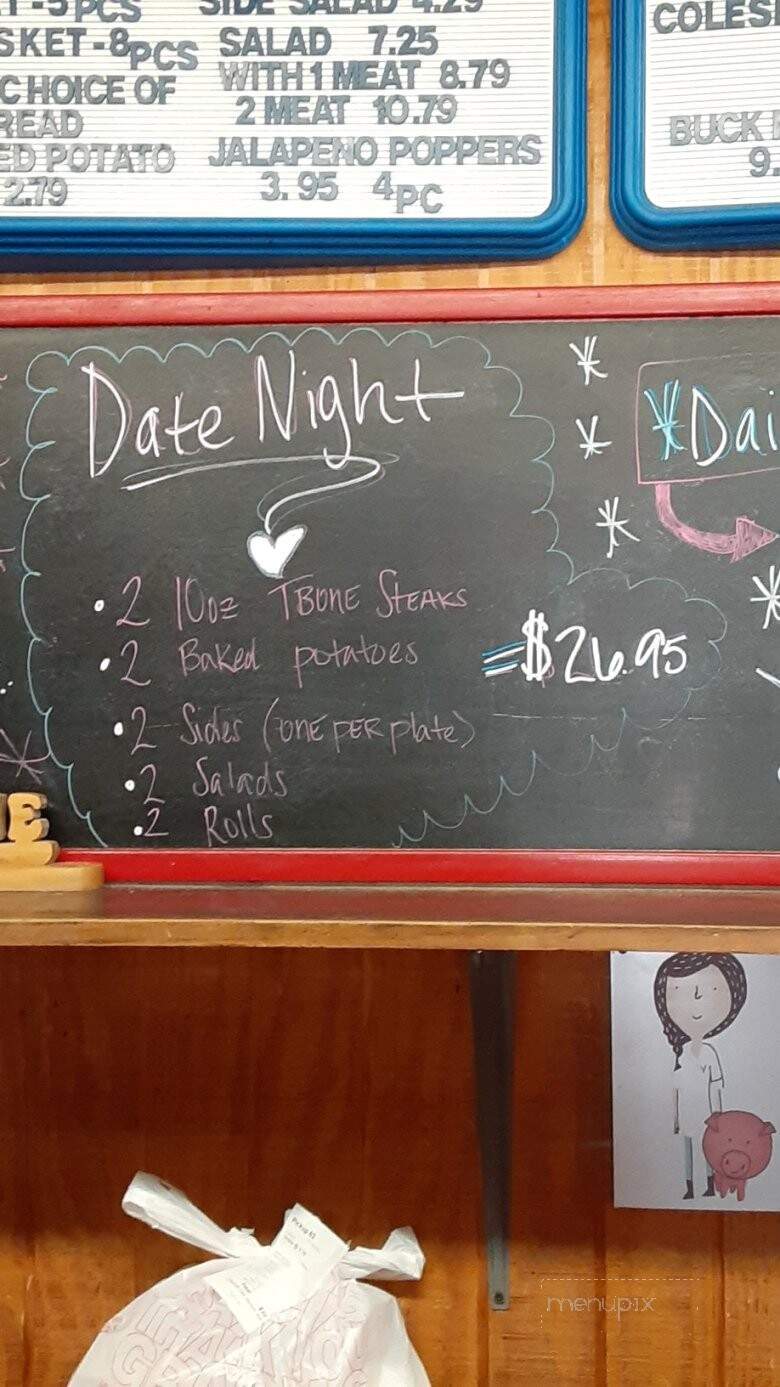 SIDE SALAD 4.29
-5PCS
SKET-8PCS
CHOICE OF
READ
ED POTATO
2.79
SALAD 7.25
WITH 1 MEAT 8.79
2 MEAT 10.79
JALAPENO POPPERS
3.95 4PC
COLES
BUCK
9.
Date Night
• 2 10oz TBONE STEAKS
• 2 Baked potatoes
• 2 Sides (one per plate)
• 2 Salads
• 2 Rolls
=$26.95
*Dai
E
Pickup
THANK YO
menupix